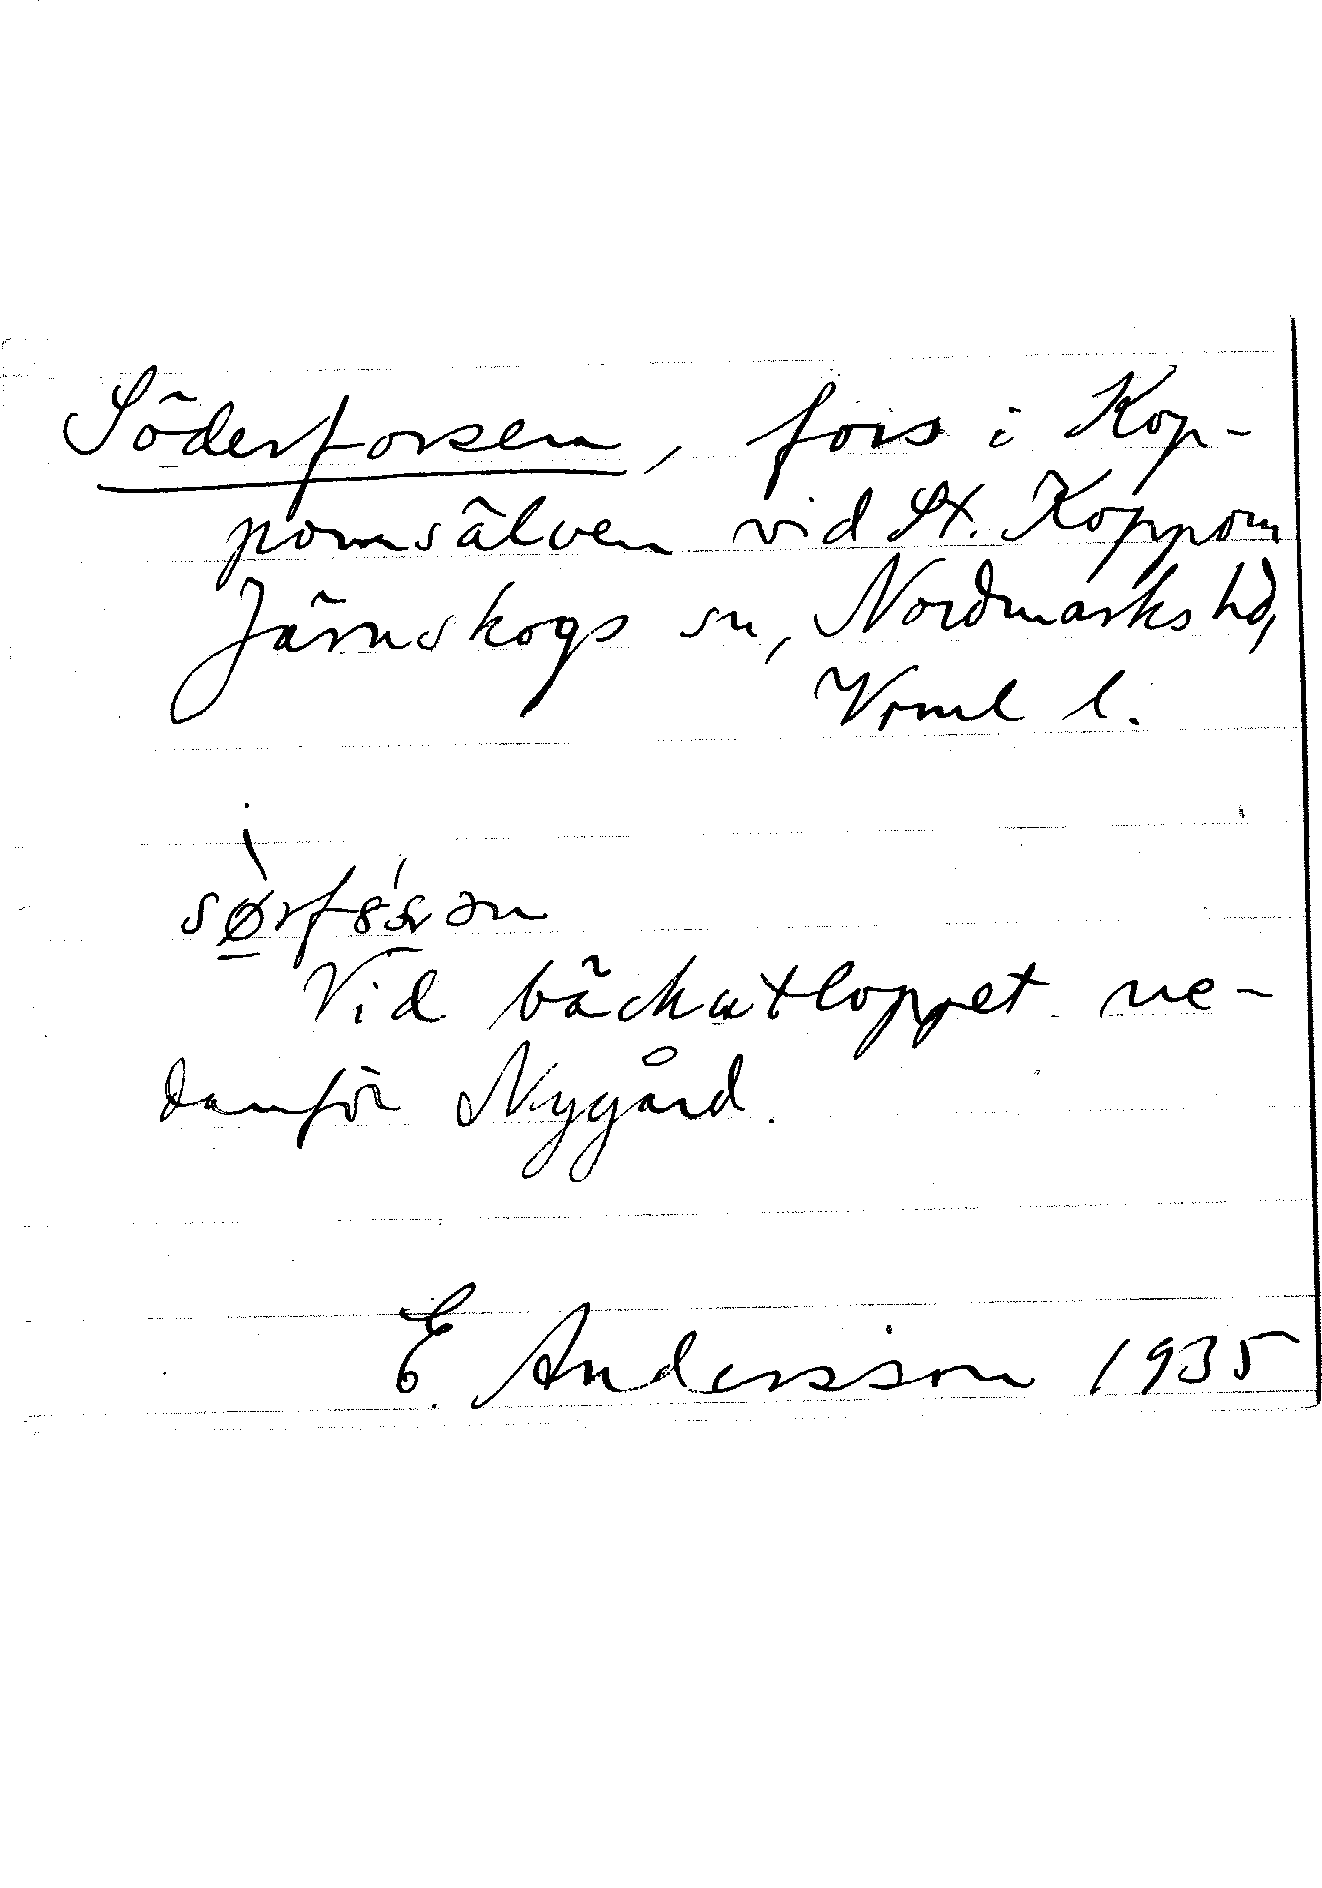 Söderforsen, fors i Kop-
pomsälven vid St. Koppom
Järnskogs sn, Nordmarks hd,
Vrml l.
Vid bäckutloppet ne-
danför Nygård.
E Andersson 1935